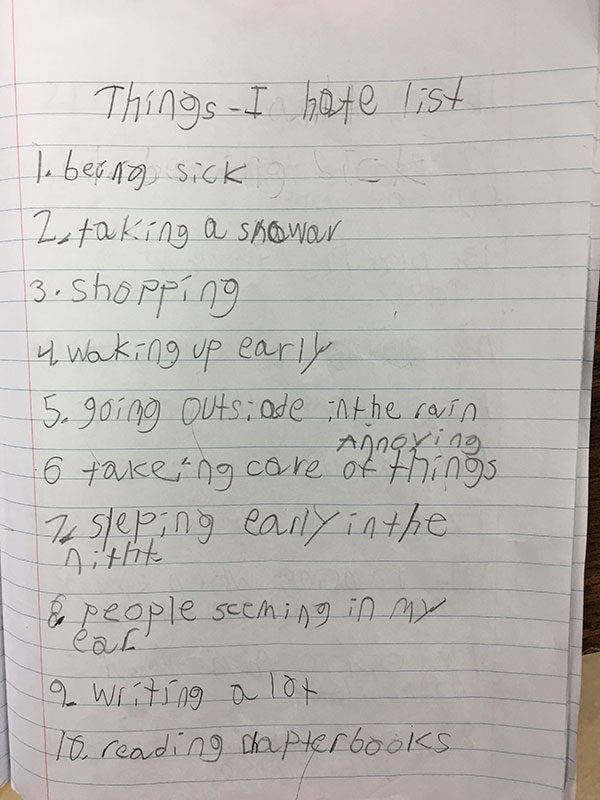 Things-I hate list
1. being sick
2. taking a snowar
3. shopping
4. waking up early
5. going outsiade in the rain
Annoying
6 takeing care of things
7. sleping early in the
nitht
8. people sceming in my
ear
9. writing a lot
10. reading chapter books